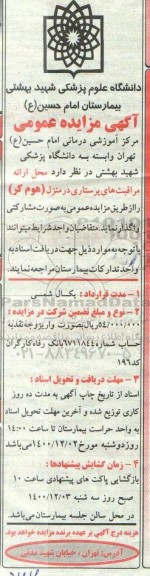 دانشگاه علوم پزشکی شهید بهشتی
بیمارستان امام حسین(ع)
آگهی مزایده عمومی
مرکز آموزشی درمانی امام حسین(ع)
تهران وابسته به دانشگاه پزشکی
شهید بهشتی در نظر دارد محل ارائه
مراقبت های پرستاری در منزل (هوم کر)
را از طریق مزایده عمومی به صورت مشارکتی
واگذار نماید. متقاضیان واجد شرایط میتوانند
با توجه به موارد ذیل جهت دریافت اسناد به
واحد تدارکات بیمارستان مراجعه نمایند.
۱- مدت قرارداد : یکسال شمسی
۲- نوع و مبلغ تضمین شرکت در مزایده :
۵۴/۰۰۰/۰۰۰ ریال بصورت واریز وجه نقد به
حساب شماره ۶۷۱۱۸۴۴ بانک رفاه کارگران
کد ۱۹۶
۳- مهلت دریافت و تحویل اسناد :
اسناد از تاریخ چاپ آگهی به مدت ده روز
کاری توزیع شده و آخرین مهلت تحویل اسناد
به واحد حراست بیمارستان تا ساعت ۱۴:۰۰
روز دوشنبه مورخ ۱۴۰۰/۱۲/۰۲ می باشد.
۴- زمان گشایش پیشنهادها :
بازگشایی پاکت های پیشنهادی ساعت ۱۰
صبح روز سه شنبه ۱۴۰۰/۱۲/۰۳
در محل سالن جلسه بیمارستان می باشد.
هزینه درج آگهی بر عهده برنده مزایده خواهد بود.
آدرس: تهران ، خیابان شهید مدنی